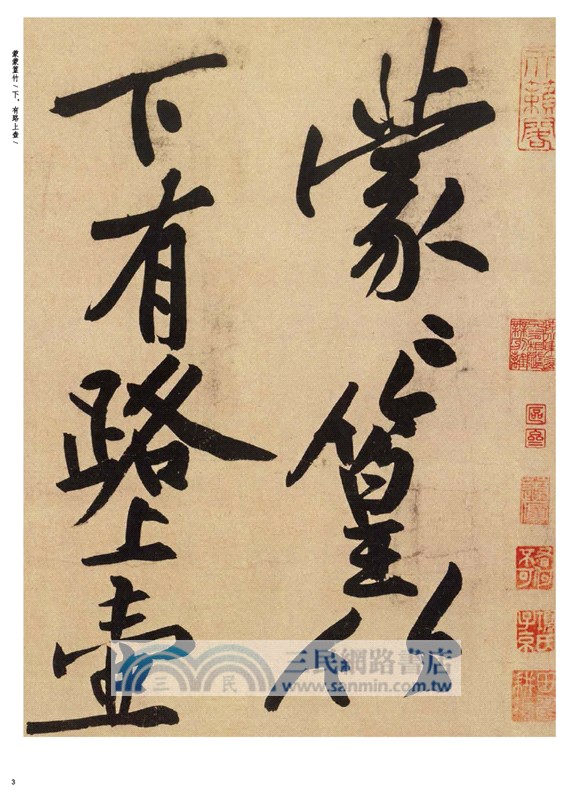 蒙〻篁竹
下有路上壺
蒙蒙篁竹/下，有路上壺/
天籟閣
項氏子京
三民網路書店
三民
www.sanmin.com.tw
3